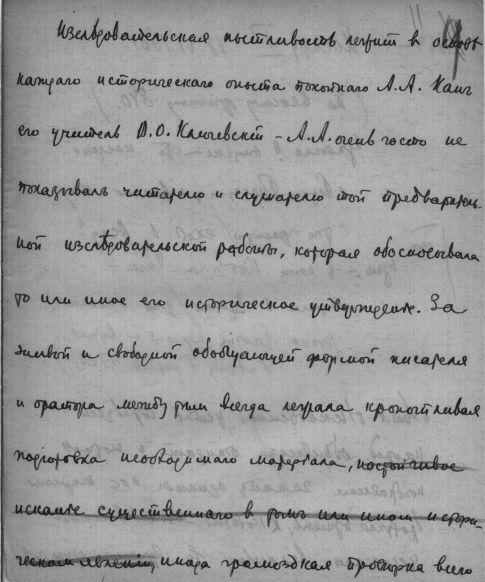 Изслѣдовательская пытливость лежит в основѣ
каждаго историческаго опыта покойнаго А.А. Какъ
его учитель В.О. Ключевскій – А.А. очень часто не
показывалъ читателю и слушателю той предваритель-
ной изслѣдовательской работы, которая обосновывала
то или иное его историческое утвержденіе. За
живой и свободной обобщающей формой писателя
и оратора между тѣм всегда лежала кропотливая
подготовка необходимаго матеріала, настойчивое
исканіе существеннаго в том или ином истори-
ческом явленіи, иногда громоздкая провѣрка всего